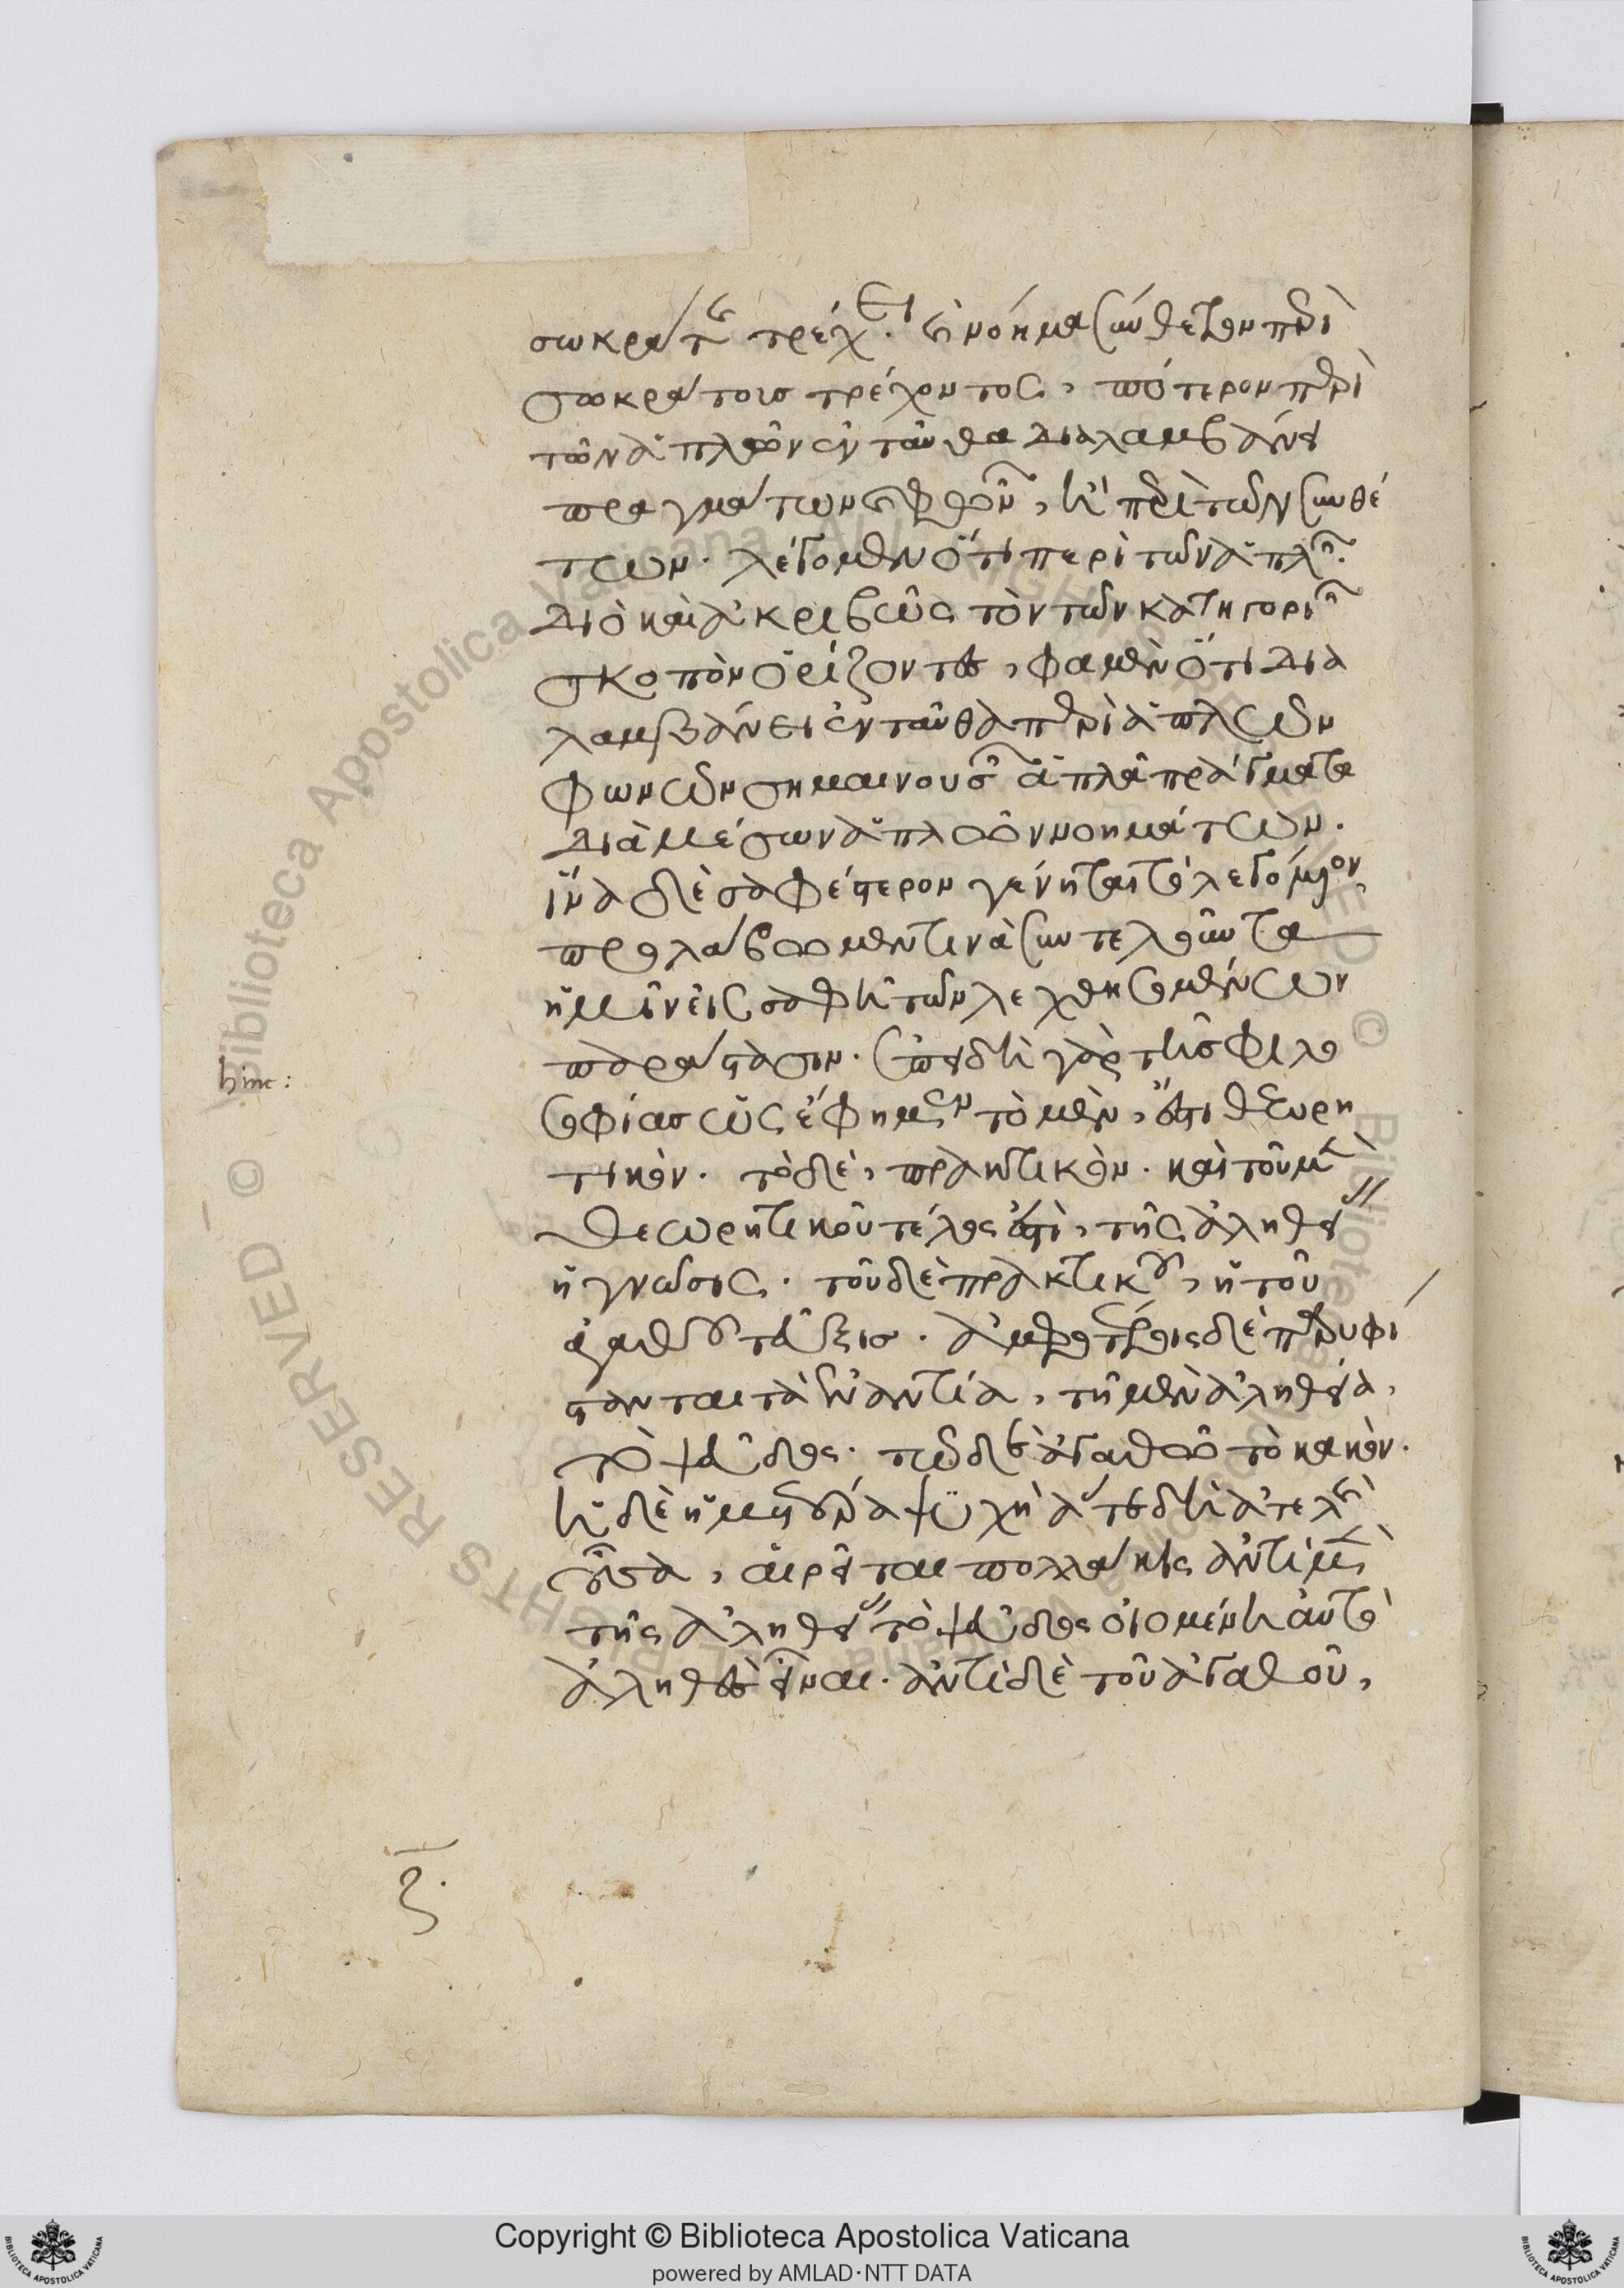 σωκράτης τρέχει. καὶ νόημα σύνθετον περὶ
σωκράτους τρέχοντος, πότερον περὶ
τῶν ἁπλῶν ἐνταῦθα διαλαμβάνει
πραγμάτων καὶ φωνῶν, ἢ περὶ τῶν συνθέ
των. λέγομεν ὅτι περὶ τῶν ἁπλῶν.
διὸ καὶ ἀκριβῶς τὸν τῶν κατηγοριῶν
σκοπὸν ὁρίζοντες, φαμὲν ὅτι δια
λαμβάνει ἐνταῦθα περὶ ἁπλῶν
φωνῶν σημαινουσῶν ἁπλᾶ πράγματα
διὰ μέσων ἁπλῶν νοημάτων.
ἵνα δὲ σαφέστερον γένηται τὸ λεγόμενον,
προλάβωμεν τινὰ συντελοῦντα
ἡμῖν εἰς σαφῆ τῶν λεχθησομένων
παράστασιν. ἐπειδὴ γὰρ τῆς φιλο
σοφίας ὡς ἔφημεν τὸ μὲν, ἐστι θεωρη
τικόν. τὸ δὲ, πρακτικόν. καὶ τοῦ μὲν
θεωρητικοῦ τέλος ἐστὶ, τῆς ἀληθείας
ἡ γνῶσις. τοῦ δὲ πρακτικοῦ, ἡ τοῦ
ἀγαθοῦ τεῦξις. ἀμφοτέροις δὲ παρυφί
στανται τὰ ἐναντία, τῇ μὲν ἀληθεία,
τὸ ψεῦδος. τῷ δὲ ἀγαθῶ τὸ κακόν.
ἡ δὲ ἡμετέρα ψυχὴ ἅτε δὴ ἀτελὴς
οὖσα, αἱρεῖται πολλάκις ἀντὶ μὲν
τῆς ἀληθείας τὸ ψεῦδος οἰομένη αὐτὸ
ἀληθὲς εἶναι. ἀντὶ δὲ τοῦ ἀγαθοῦ,
hinc:
Copyright © Biblioteca Apostolica Vaticana
powered by AMLAD·NTT DATA